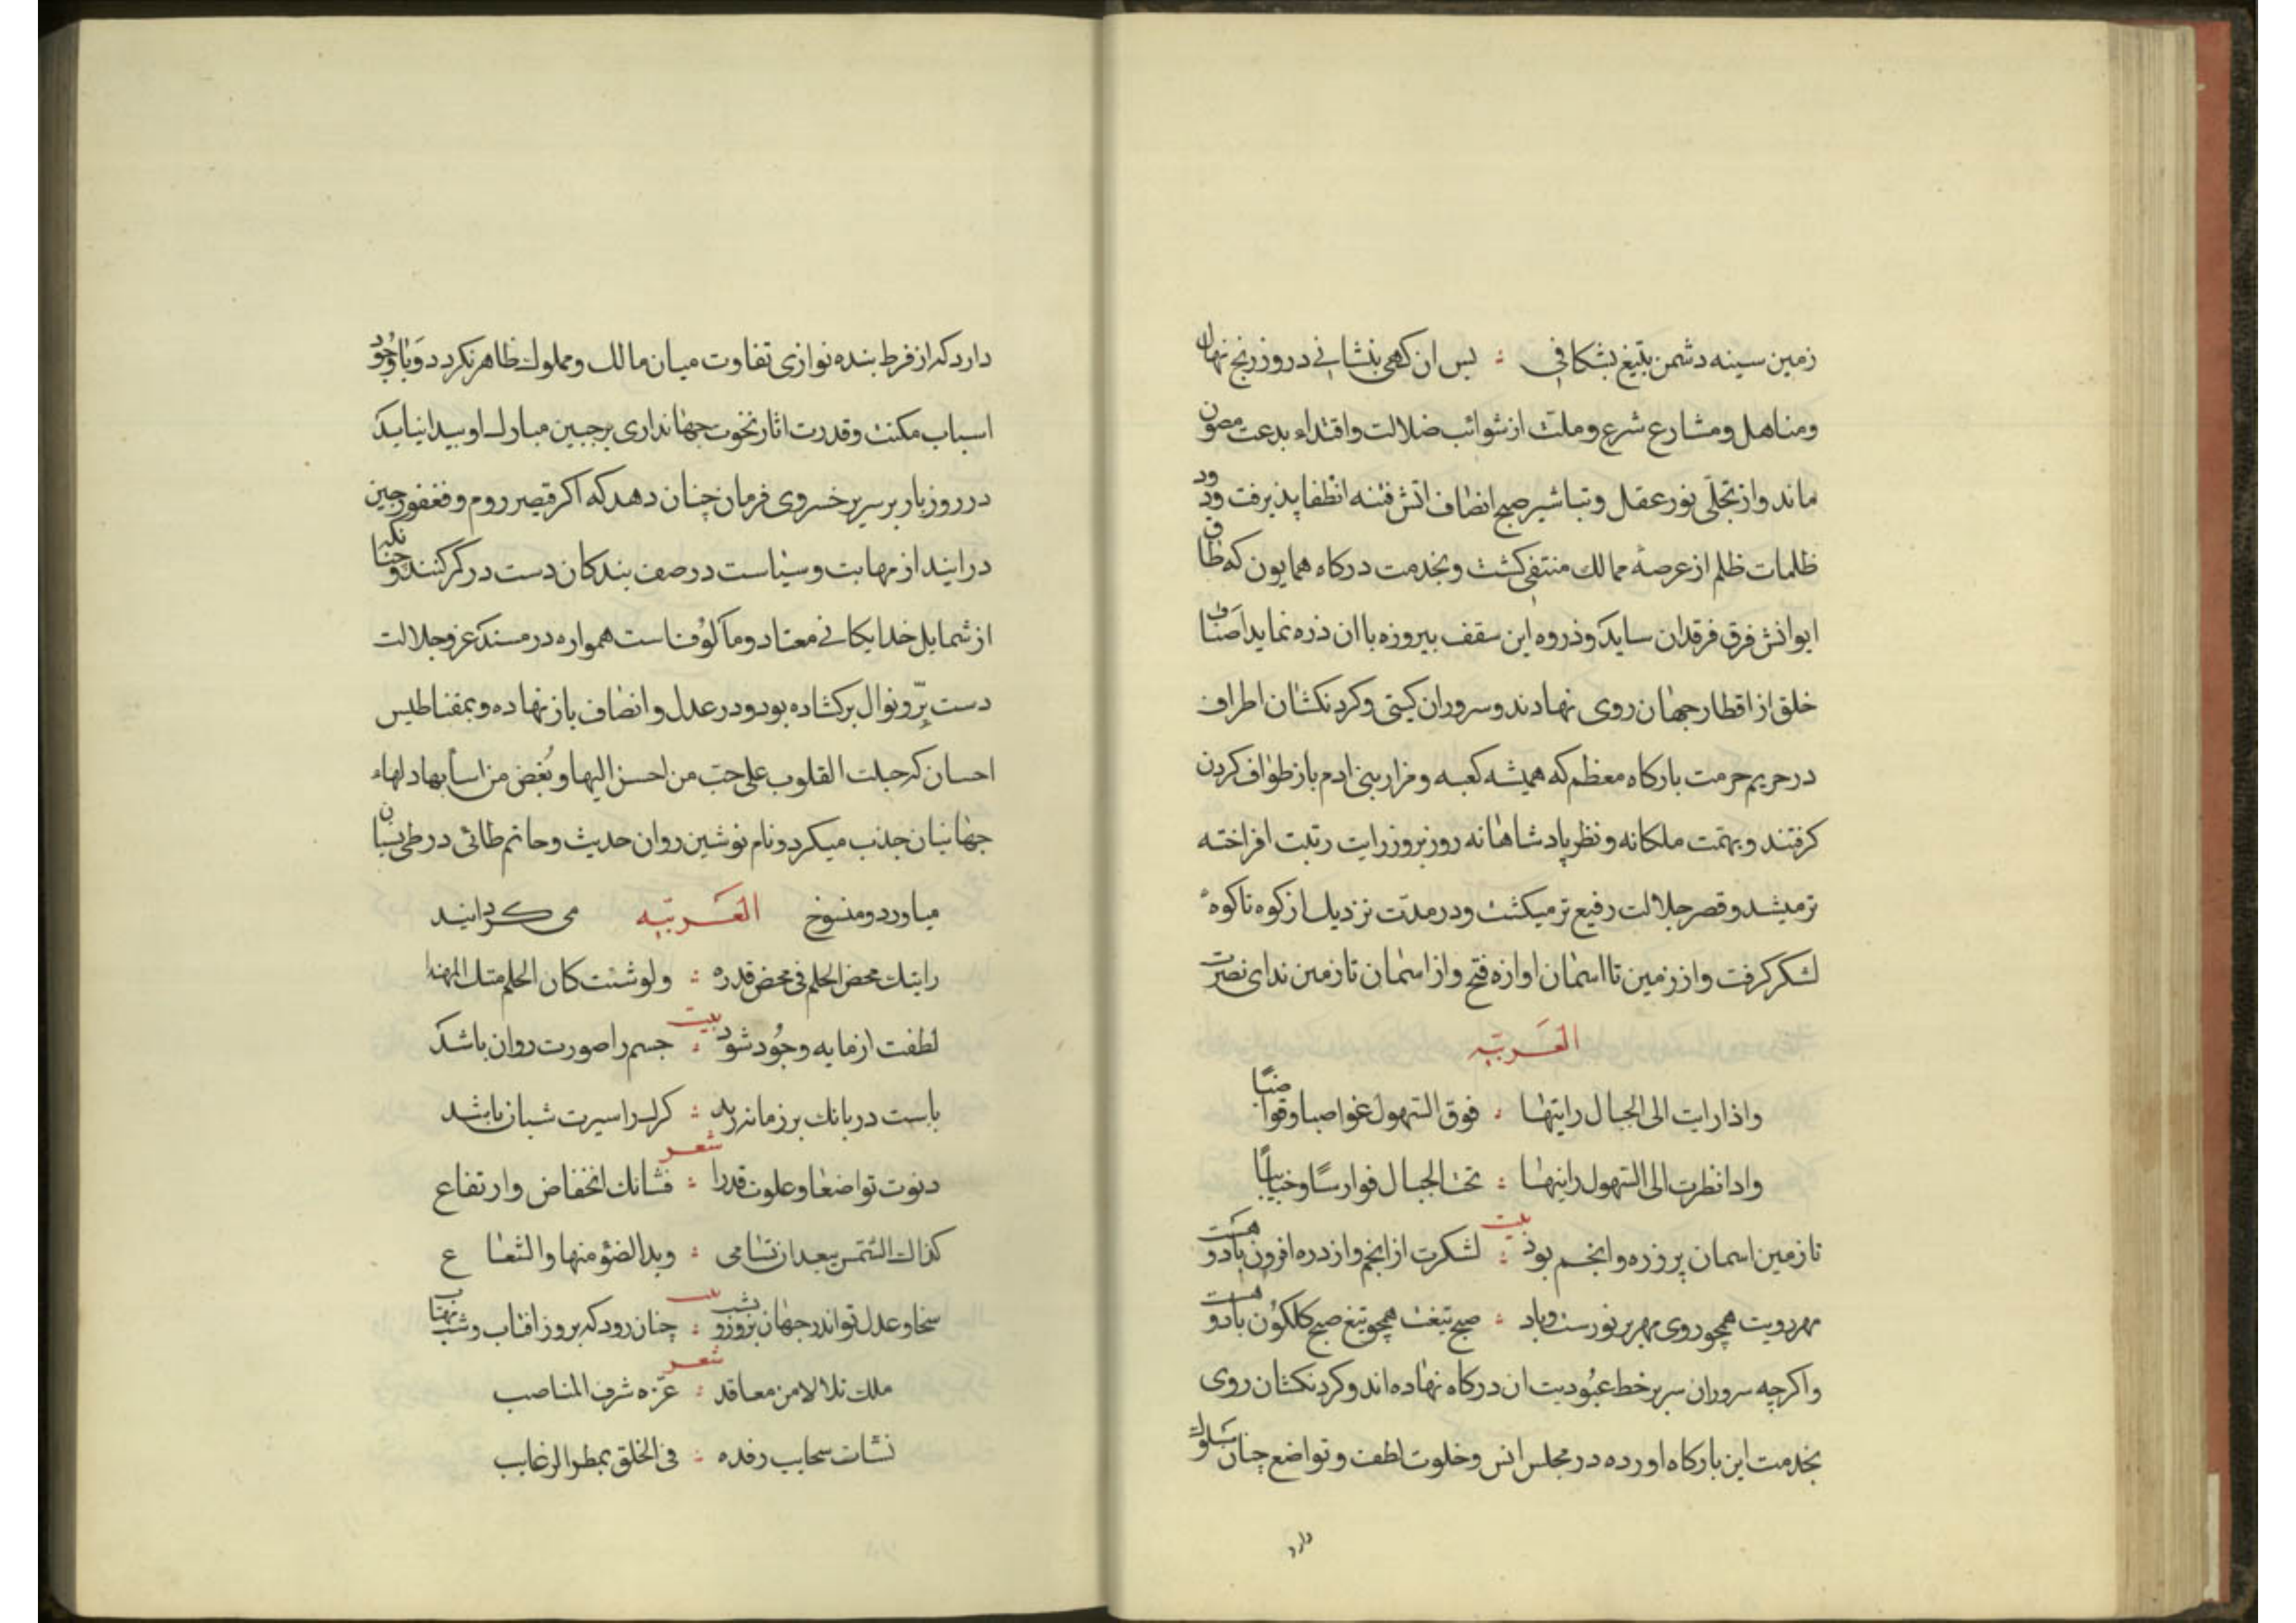 زمین سینه دشمن بتیغ بشکافی ؛ بس ان کهی بنشانی درو ز رنج نهال
ومناهل ومشارع شرع وملت از شوائب ضلالت واقتداء بدعت مصون
ماند واز تجلّی نور عقل وتباشیر صبح انصاف اتش فتنه انطفا پذیرفت ودود
ظلمات ظلم از عرصهٔ ممالك منتفی کشت وبخدمت درکاه همایون که طاق
ایوانش فرق فرقدان ساید وذروه این سقف بیروزه با ان ذره نماید اصناف
خلق از اقطار جهان روی نهادند وسروران کیتی وکردنکشان اطراف
در حریم حرمت بارکاه معظم که همیشه کعبه ومزار بنی ادم باز طواف کردن
کرفتند وبهمّت ملکانه ونظر پادشاهانه روز بروز رایت رتبت افراخته
تر میشد وقصر جلالت رفیع تر میکشت ودر مدّت نزدیك از کوه تا کوه
لشکر کرفت واز زمین تا اسمان اوازه فتح واز اسمان تا زمین ندای نصرت
العَربیّه
واذا رایت الی الجبال رایتها ؛ فوق السهول عواصبا وقواضبًا
واذا نظرت الی السهول رایتها ؛ تحت الجبال فوارسًا وخبایبًا
بیت
تا زمین اسمان پر وزره وانجم بود ؛ لشکرت از انجم واز دره افزون باد وهست
مهر رویت همچو روی مهر پر نورست وباد ؛ صبح تیغت همچو تیغ صبح کلکون باد وهست
واکرچه سروران سر بر خط عبُودیت ان درکاه نهاده اند وکردنکشان روی
بخدمت این بارکاه اورده در مجلس انس وخلوت لطف وتواضع چنان سلوك
دارد
دارد که از فرط بنده نوازی تفاوت میان مالك ومملوك ظاهر نکردد وَباوجُود
اسباب مکنت وقدرت اثار نخوت جهانداری بر جبین مبارك او بیدا نیاید
در روز بار بر سریر خسروی فرمان چنان دهد که اکر قیصر روم وفغفور چین
در ایند از مهابت وسیاست در صف بندکان دست در کمر کنند وچنانکه
از شمایل خدایکانی معتاد ومالوُفست همواره در مسند عز وجلالت
دست برّ ونوال برکشاده بود ودر عدل وانصاف باز نهاده وبمغناطیس
احسان که جبلت القلوب علی حب من احسن الیها وبُغض من اسأ بها دلهاء
جهانیان جذب میکرد ونام نوشین روان حدیث وحاتم طائی در طی نسیان
میاورد ومنسوخ می کردانید
العَربیّه
رایتك محض الحلم فی محض قدره ؛ ولو شئت کان الحلم متك المهندا
بیت
لطفت ار مایه وجُود شود ؛ جسم را صورت روان باشد
باست در بانك بر زمانه زند ؛ کرك را سیرت شبان باشد
شعر
دنوت تواضعا وعلوت قدرا ؛ فشانك انخفاض وارتفاع
کذاك الشمس یبعد ان تسامی ؛ ویدا الضوٴ منها والشعاع
بیت
سخا وعدل تو اندر جهان بروز و بشب ؛ چنان رود که بروز افتاب وشب مهتاب
شعر
ملك تلالا من معاقد ؛ عزّه شرف المناصب
نشات سحایب رفده ؛ فی الخلق بمطر الرغایب